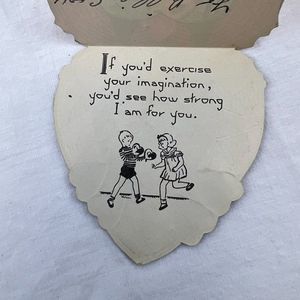 If you'd exercise
your imagination,
you'd see how strong
I am for you.